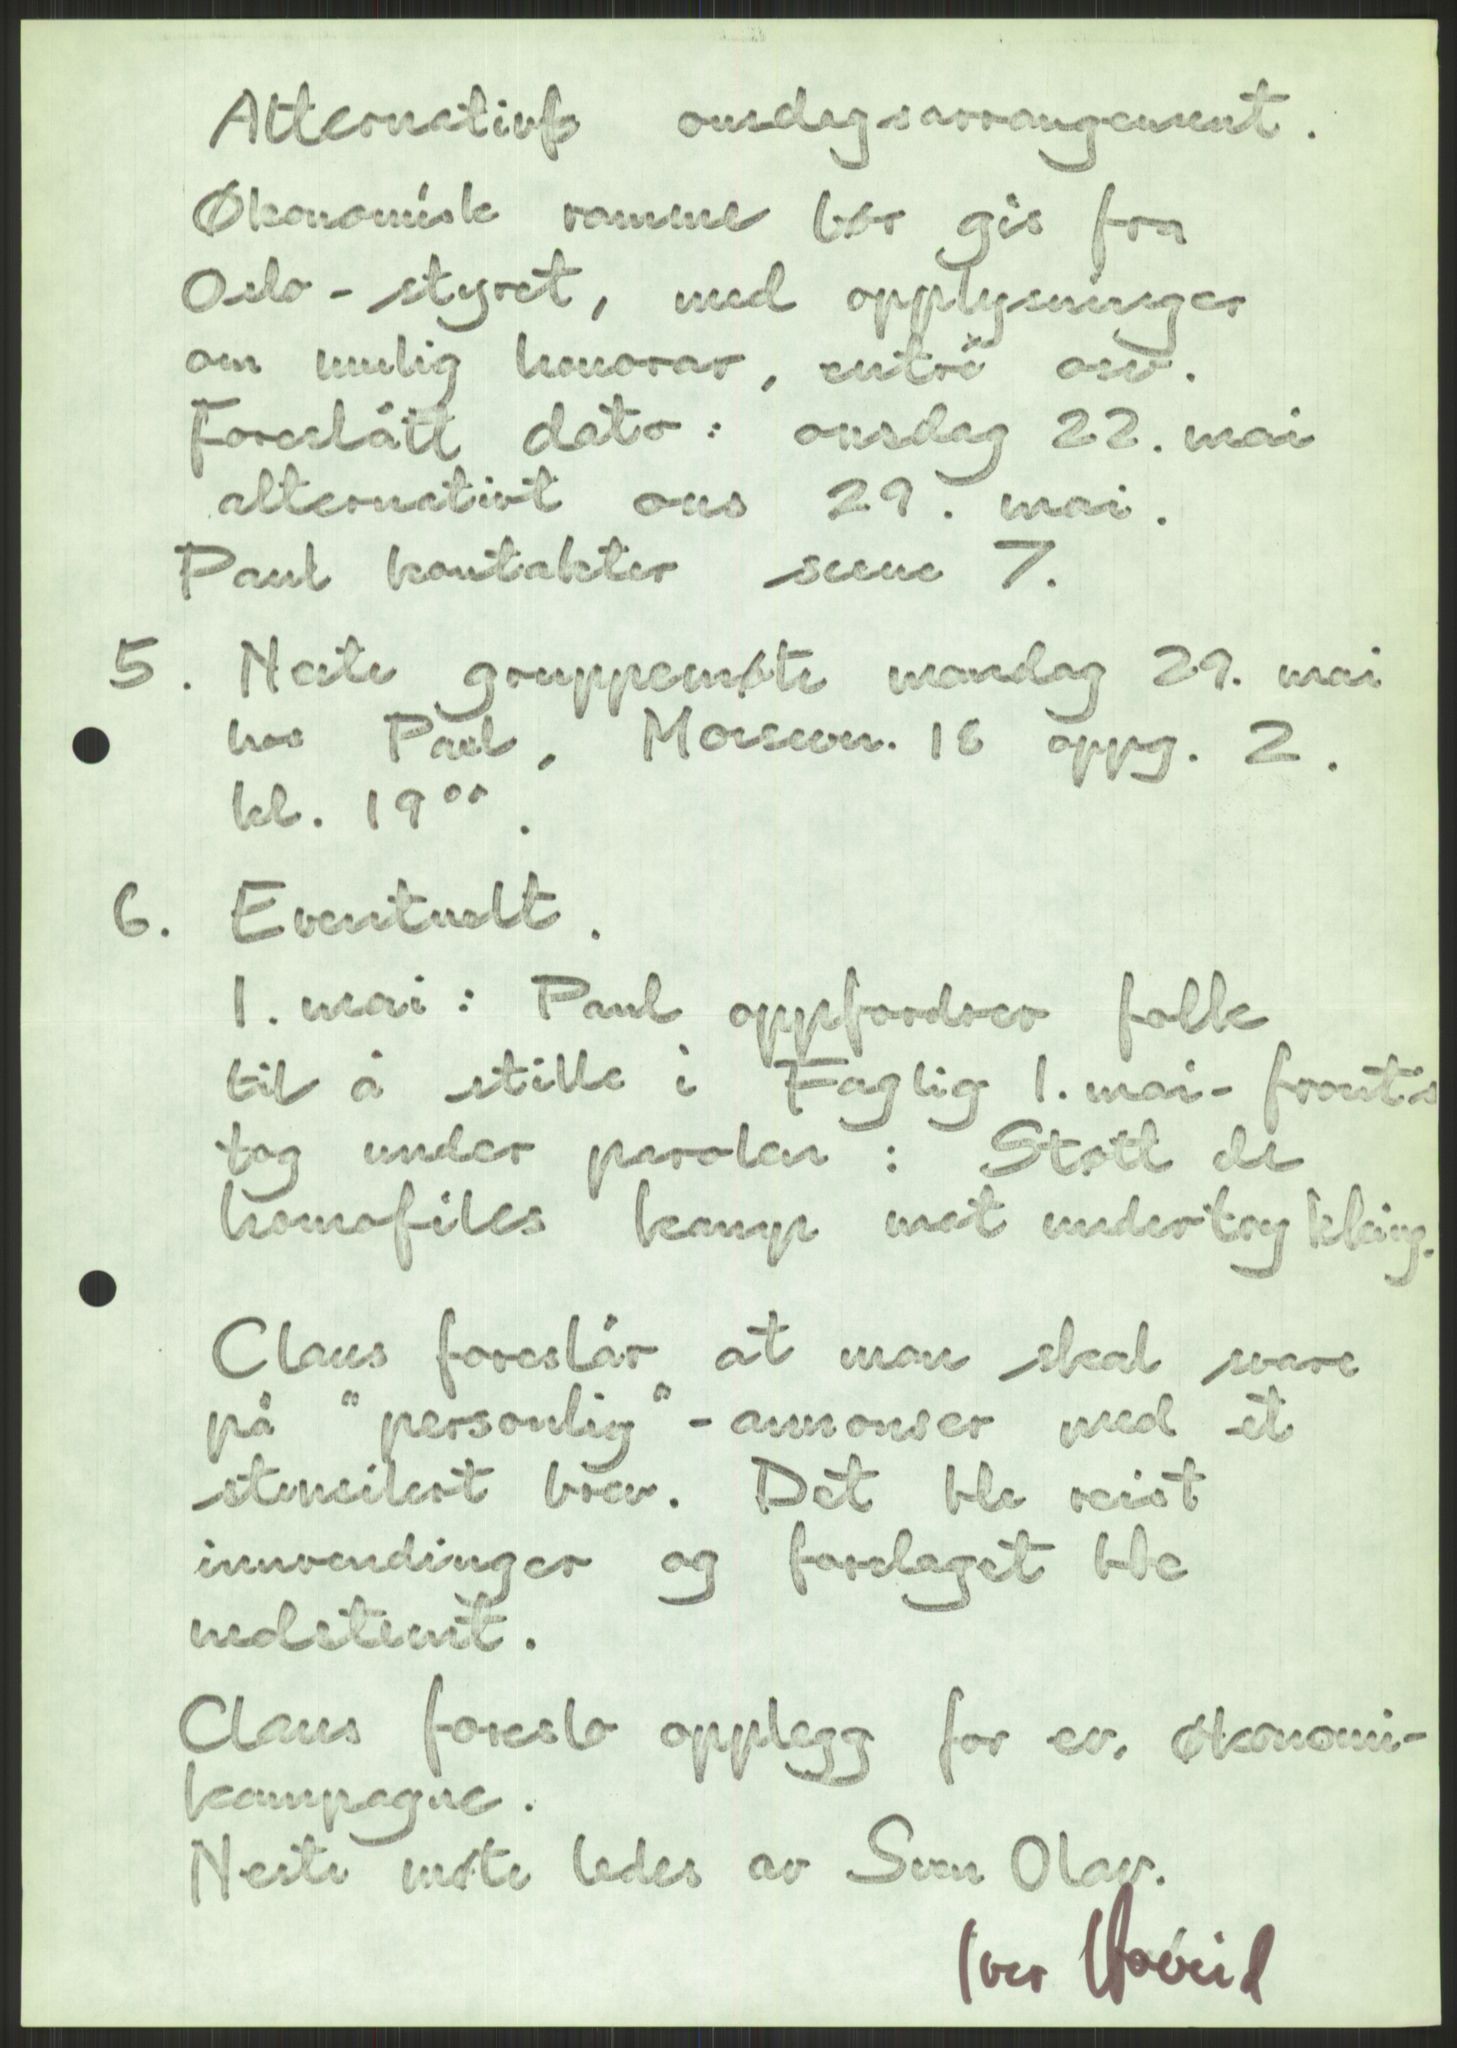 Alternativt onsdagsarrangement.
Økonomisk ramme bør gis fra
Oslo-styret, med opplysninger
om mulig honorar, entré osv.
Foreslått dato: onsdag 22. mai
alternativt ons 29. mai.
Paul kontakter scene 7.
5. Neste gruppemøte mandag 29. mai
hos Paul, 16 oppg. 2.
kl. 19⁰⁰.
6. Eventuelt.
1. mai: Paul oppfordrer folk
til å stille i Faglig 1. mai-front's
tog under parolen: Støtt de
homofiles kamp mot undertrykking.
Claus foreslår at man skal svare
på "personlig"-annonser med et
stensilert brev. Det ble reist
innvendinger og forslaget ble
nedstemt.
Claus foreslo opplegg for ev. økonomi-
kampagne.
Neste møte ledes av Sven Olav.
Iver